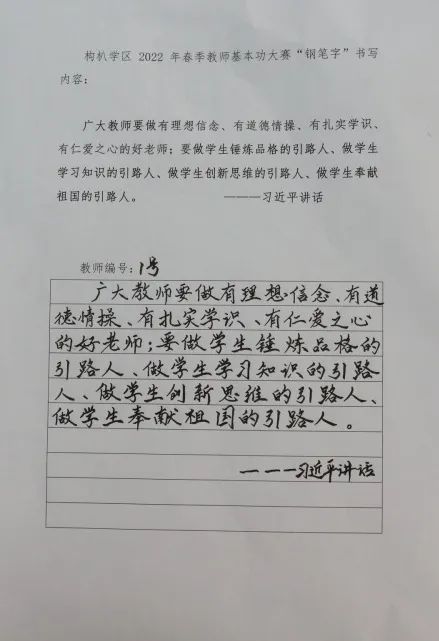 构朳学区 2022 年春季教师基本功大赛“钢笔字”书写
内容：
广大教师要做有理想信念、有道德情操、有扎实学识、
有仁爱之心的好老师；要做学生锤炼品格的引路人、做学生
学习知识的引路人、做学生创新思维的引路人、做学生奉献
祖国的引路人。 ————习近平讲话
教师编号：1号
广大教师要做有理想信念、有道
德情操、有扎实学识、有仁爱之心
的好老师；要做学生锤炼品格的
引路人、做学生学习知识的引路
人、做学生创新思维的引路人、
做学生奉献祖国的引路人。
———习近平讲话